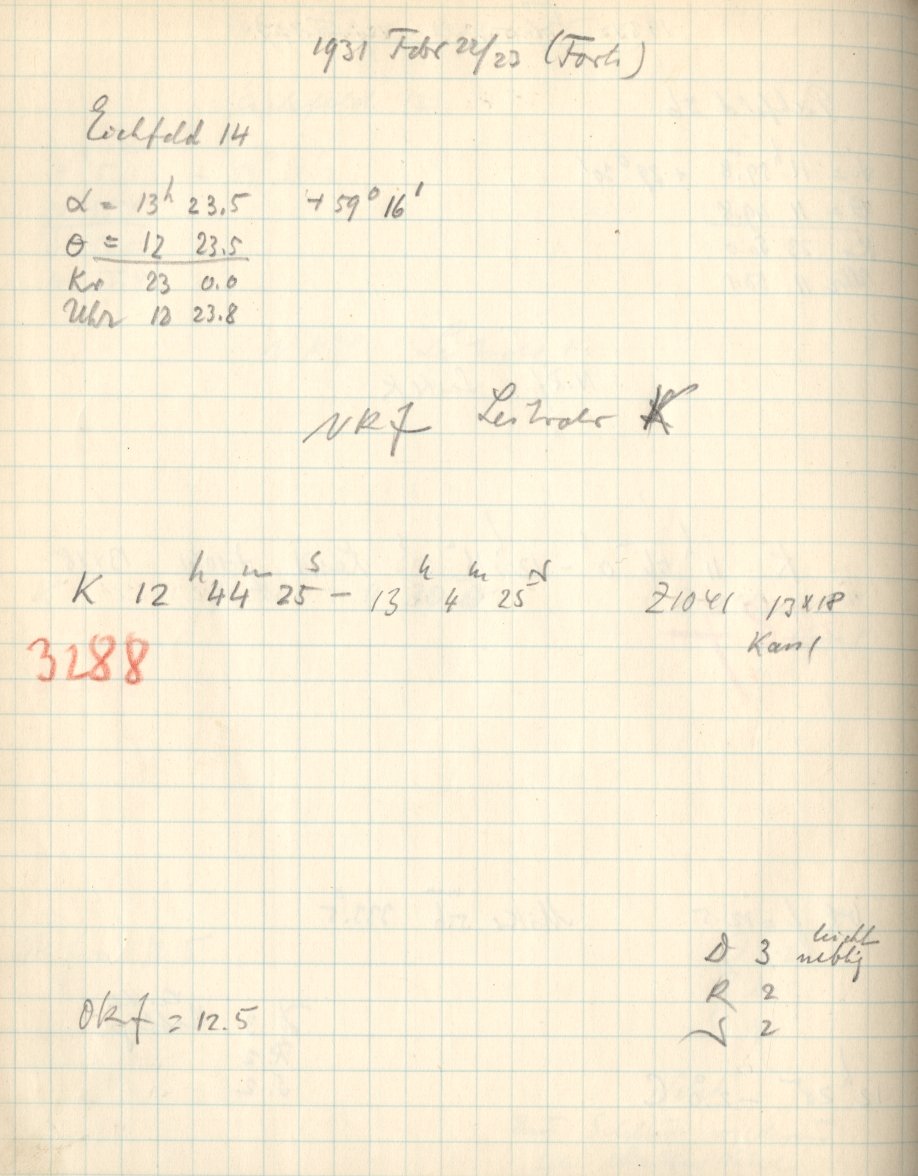 1931 Febr 22/23 (Forts)
Eichfeld 14
α = 13ʰ 23.5 + 59° 16'
θ = 12 23.5
Kr 23 0.0
Uhr 12 23.8
Leitrohr K
K 12ʰ 44ᵐ 25ˢ – 13ʰ 4ᵐ 25ˢ Z1041 13×18
3288
leicht
D 3 neblig
R 2
S 2
OKf = 12.5